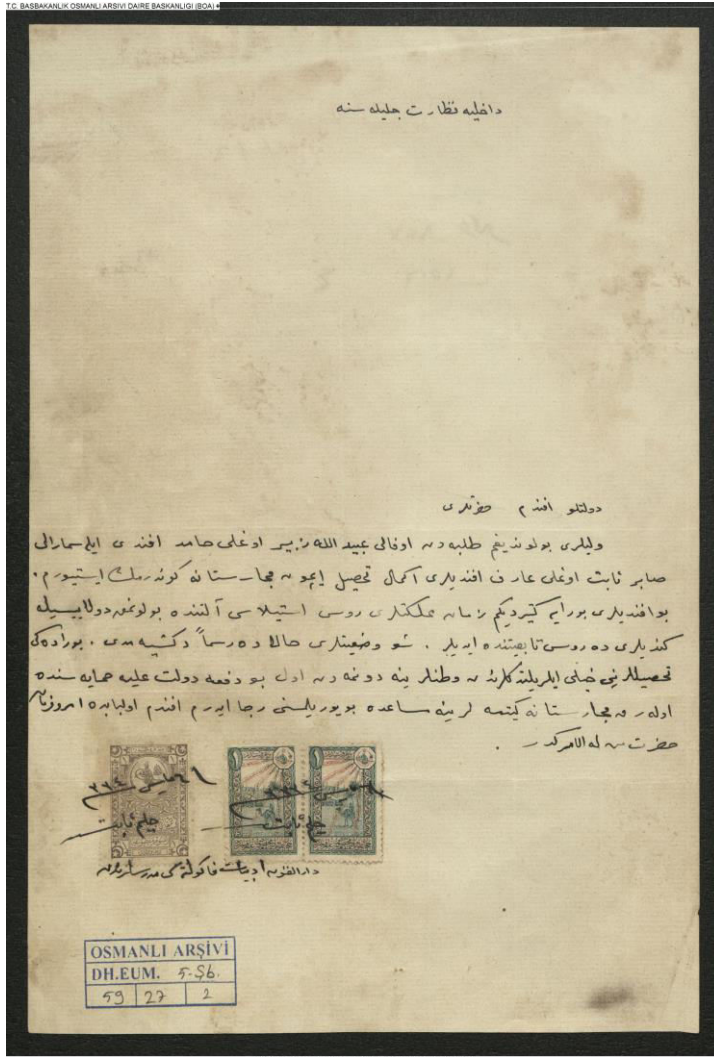 T.C. BASBAKANLIK OSMANLI ARSIVI DAIRE BASKANLIGI (BOA)
داخليه نظارت جليله سنه
دولتلو افندم حضرتلرى
وليلرى بولونديغم طلبه دن اوفالى عبيد الله زبير اوغلى حامد افندى ايله سمارالى
صابر ثابت اوغلى عارف افنديلرى اكمال تحصيل ايچون مجارستانه كوندرمك ايستيورم.
بو افنديلرى بورايه كتيرديكم زمان مملكتلرى روس استيلاسى آلتنده بولونمق دولاييسيله
كنديلرى ده روس تابعيتنده ايديلر. شو وضعيتلرى حالا ده رسماً دكشمه مدى. بوراده كى
تحصيللرينى خيلى ايلريلتدكلرندن وطنلرينه دونمه دن اول بو دفعه دولت عليه حمايه سنده
اوله رق مجارستانه كيتمه لرينه مساعده بويوريلسنى رجا ايدرم افندم اولبابده امر و فرمان
حضرت من له الامركدر.
مايس ٣٣٤
مايس ٣٣٤
حليم ثابت
حليم ثابت
دار الفنون ادبيات فاكولته سى مدرسلرندن
OSMANLI ARŞİVİ
DH.EUM. 5.Şb.
59 27 2